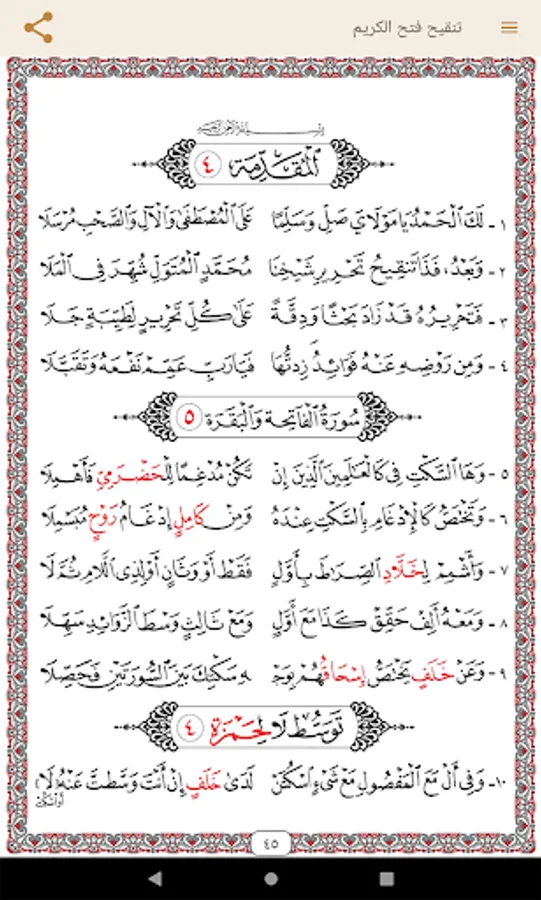 تنقيح فتح الكريم
بِسْمِ اللَّهِ الرَّحْمَٰنِ الرَّحِيمِ
الْمُقَدِّمَة ٤
١ - لَكَ الْحَمْدُ يَا مَوْلَايَ صَلِّ وَسَلِّمًا عَلَى الْمُصْطَفَىٰ وَالْآلِ وَالصَّحْبِ مُرْسَلَا
٢ - وَبَعْدُ، فَذَا تَنْقِيحُ تَحْرِيرِ شَيْخِنَا مُحَمَّدٍ الْمُتَوَلِّ شُهِّرَ فِي الْمَلَا
٣ - فَتَحْرِيرُهُ قَدْ زَادَ بَحْثًا وَدِقَّةً عَلَىٰ كُلِّ تَحْرِيرٍ لِطَيِّبَةٍ جَلَا
٤ - وَمِن رَوْضِهِ عَنْهُ فَوَائِدُ زِدتُّهَا فَيَارَبِّ عَمِّمْ نَفْعَهُ وَتَقَبَّلَا
سُورَةُ الْفَاتِحَةِ وَالْبَقَرَة ٥
٥ - وَهَا السَّكْتِ فِي كَالْعَالَمِينَ الَّذِينَ إِنْ تَكُنْ مُدْغِمًا لِلْحَضْرَمِيِّ فَأَهْمِلَا
٦ - وَتَخْتَصُّ كَالْإِدْغَامِ بِالسَّكْتِ عِنْدَهُ وَمِنْ كَامِلٍ إِدْغَامُ رَوْحٍ مُبَسْمِلَا
٧ - وَأَشْمِمْ لِخَلَّادِ الصِّرَاطَ بِأَوَّلٍ فَقَطْ أَوْ وَثَانٍ أَوْ لِذِي اللَّامِ ثُمَّ لَا
٨ - وَمَعْهُ أَلِفْ حَقِّقْ كَذَا مَعَ أَوَّلٍ وَمَعَ ثَالِثٍ وَسْطَ الزَّوَائِدِ سَهِّلَا
٩ - وَعَنْ خَلَفٍ يَخْتَصُّ إِسْحَاقُهُمْ بِوَجْـ ـهِ سَكْتِكَ بَيْنَ السُّورَتَيْنِ فَحَصِّلَا
تَوَسُّطُ لَا لِحَمْزَةَ ٤
١٠ - وَفِي أَلْ مَعَ الْمَفْصُولِ مَعْ شَيْءٍ اسْكُتَنْ لَدَىٰ خَلَفٍ إِنْ أَنْتَ وَسَّطْتَ عَنْهُ (لَا)
٤٥